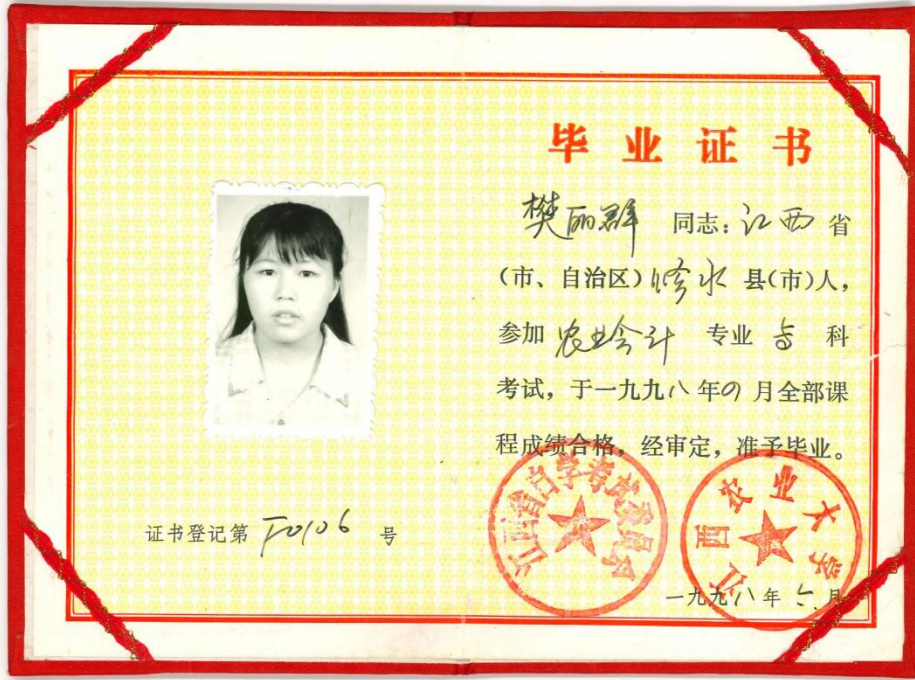 毕业证书
樊丽群 同志：江西 省
（市、自治区）修水 县（市）人，
参加 农业会计 专业 专 科
考试，于一九九八年四月全部课
程成绩合格，经审定，准予毕业。
江西省自学考试委员会
江西农业大学
一九九八年六月
证书登记第 号